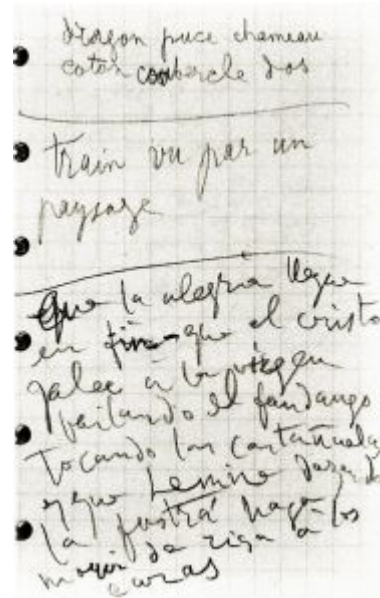 dragon puce chameau
coton couvercle dos
train vu par un
paysage
Que la alegria llegue
en fin que el cristo
jalee a la virgen
bailando el fandango
tocando las castañuelas
y que
la haga
de risa a los
curas